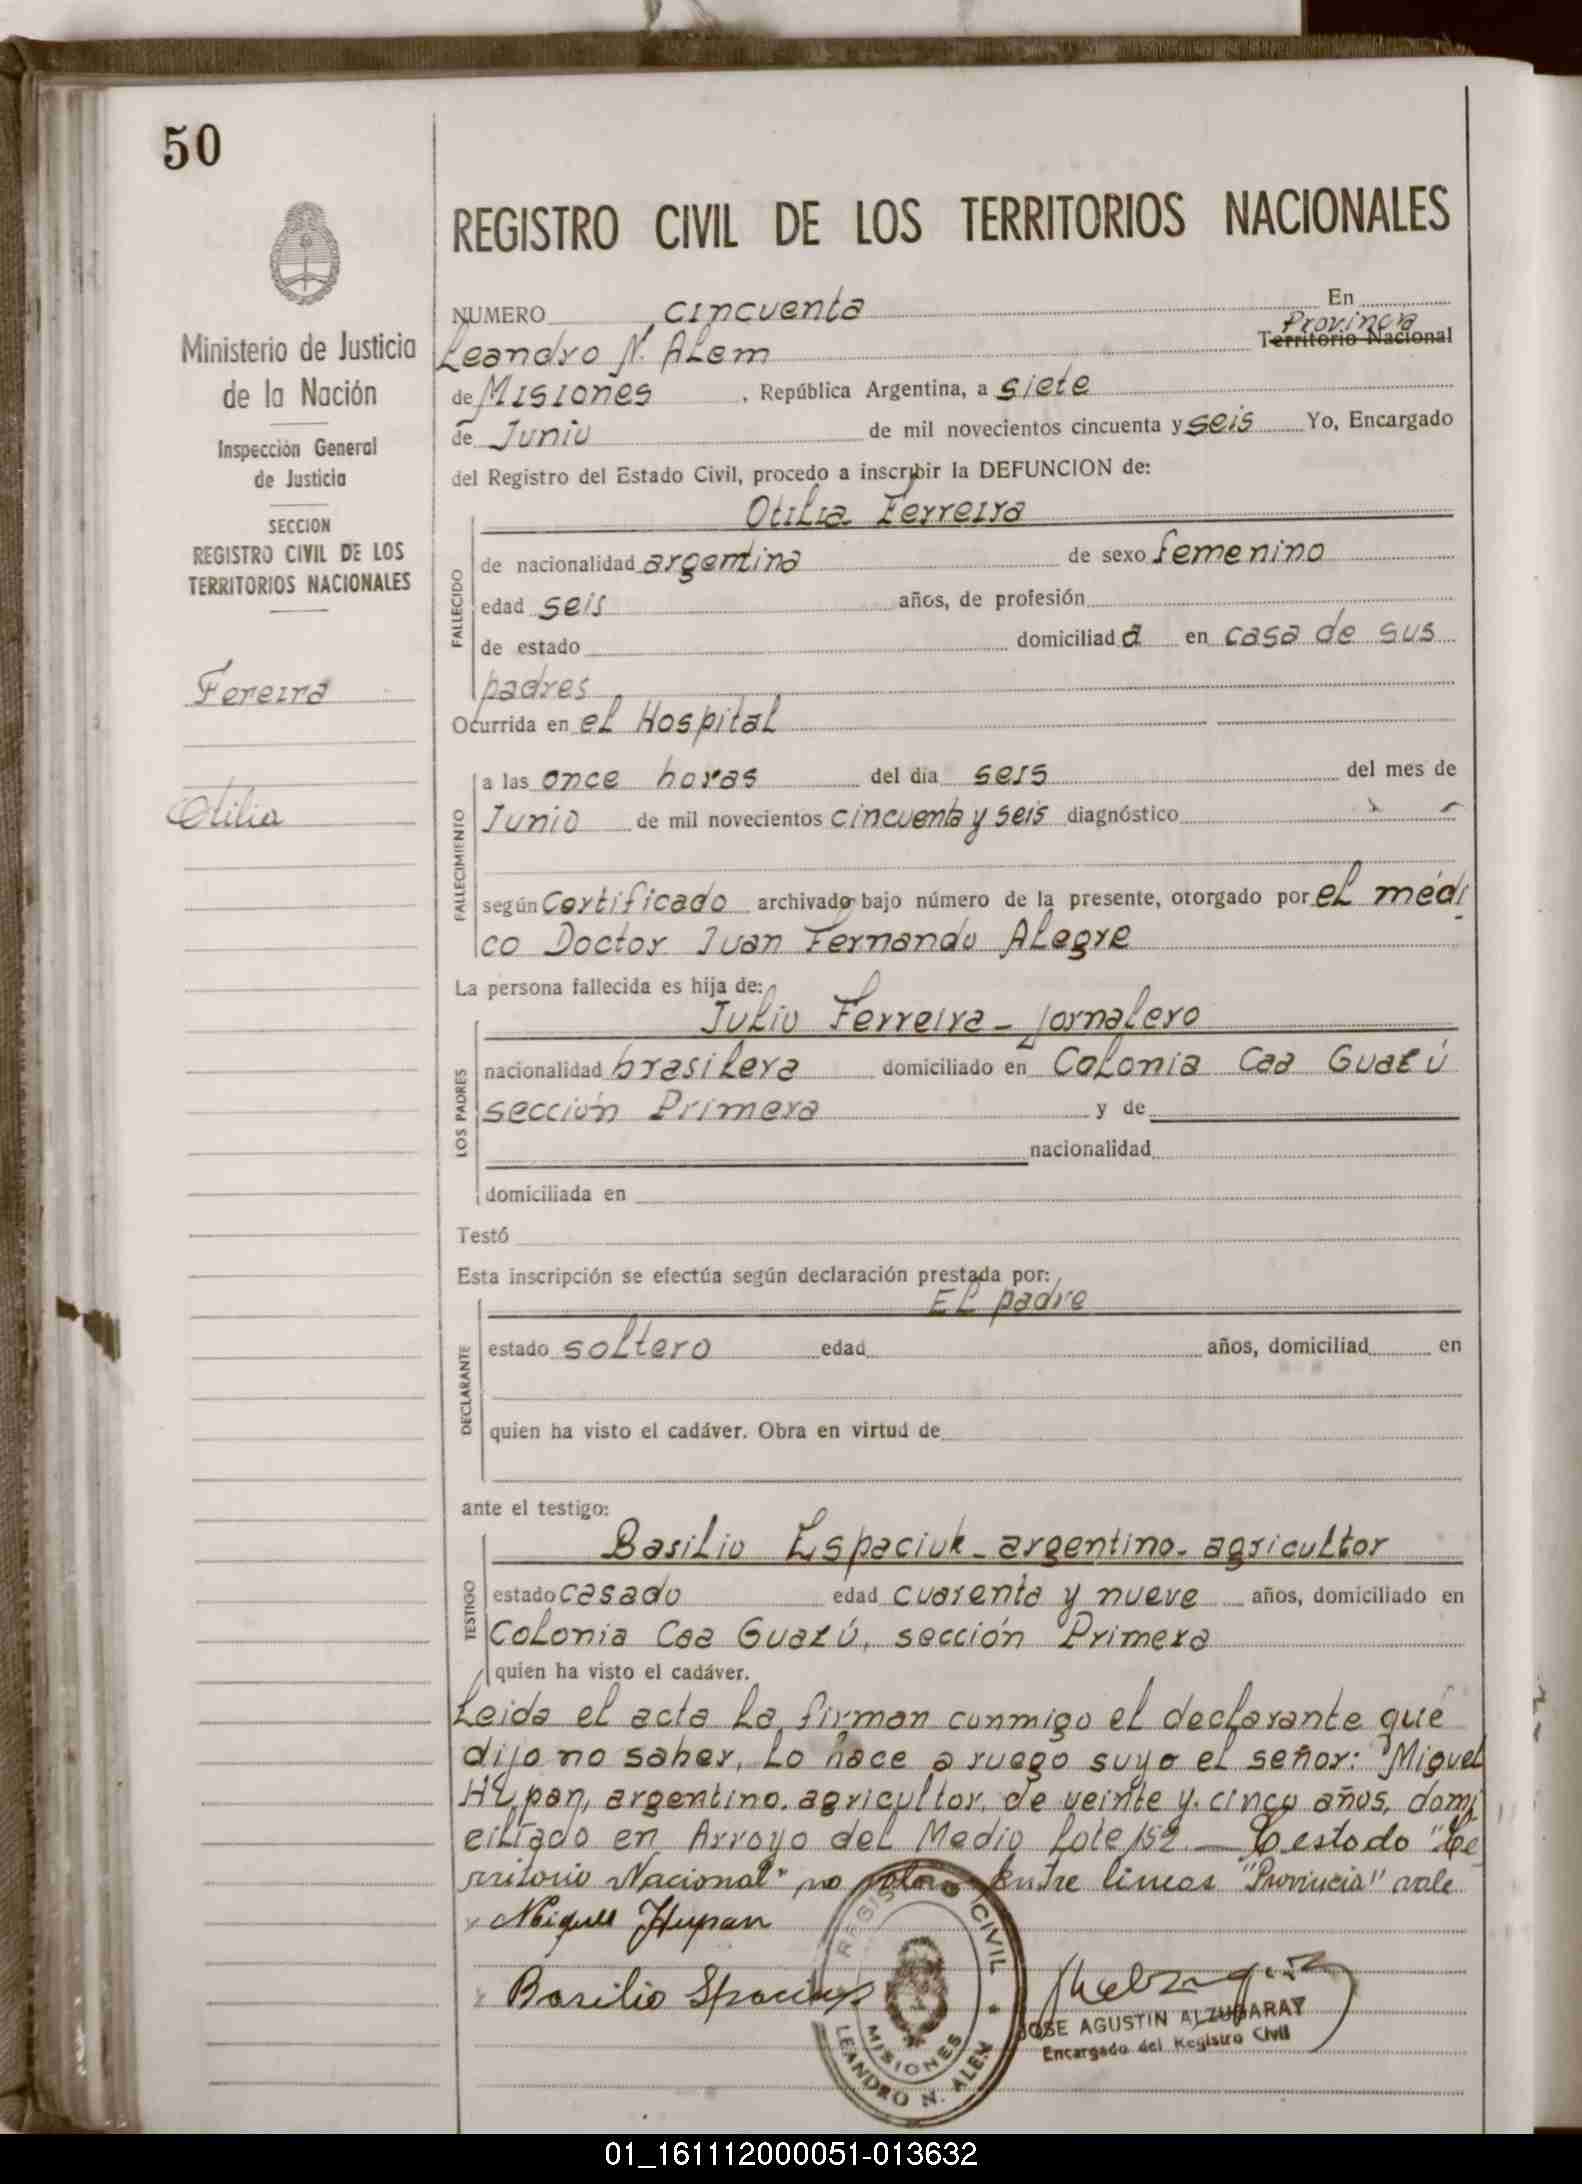 50
REGISTRO CIVIL DE LOS TERRITORIOS NACIONALES
Ministerio de Justicia
de la Nación
Inspección General
de Justicia
SECCION
REGISTRO CIVIL DE LOS
TERRITORIOS NACIONALES
Fereira
Otilia
NUMERO cincuenta En
Provincia
Leandro N. Alem Territorio Nacional
de Misiones , República Argentina, a siete
de Junio de mil novecientos cincuenta y seis Yo, Encargado
del Registro del Estado Civil, procedo a inscribir la DEFUNCION de:
Otilia Ferreira
FALLECIDO
de nacionalidad argentina de sexo femenino
edad seis años, de profesión
de estado domiciliad a en casa de sus
padres
Ocurrida en el Hospital
FALLECIMIENTO
a las once horas del día seis del mes de
Junio de mil novecientos cincuenta y seis diagnóstico
según Certificado archivado bajo número de la presente, otorgado por el médi
co Doctor Juan Fernando Alegre
La persona fallecida es hija de:
Julio Ferreira - jornalero
LOS PADRES
nacionalidad brasilera domiciliado en Colonia Caa Guazú
sección Primera y de
nacionalidad
domiciliada en
Testó
Esta inscripción se efectúa según declaración prestada por:
El padre
DECLARANTE
estado soltero edad años, domiciliad en
quien ha visto el cadáver. Obra en virtud de
ante el testigo:
Basilio Espaciuk - argentino - agricultor
TESTIGO
estado casado edad cuarenta y nueve años, domiciliado en
Colonia Caa Guazú, sección Primera
quien ha visto el cadáver.
Leida el acta la firman conmigo el declarante que
dijo no saber, lo hace a ruego suyo el señor: Miguel
Hupan, argentino, agricultor, de veinte y cinco años, domi
ciliado en Arroyo del Medio lote 152. — Testado "Te
rritorio Nacional" no vale. Entre lineas "Provincia" vale
Miguel Hupan
Basilio
REGISTRO CIVIL
MISIONES
LEANDRO N. ALEM
JOSE AGUSTIN ALZUGARAY
Encargado del Registro Civil
01_161112000051-013632